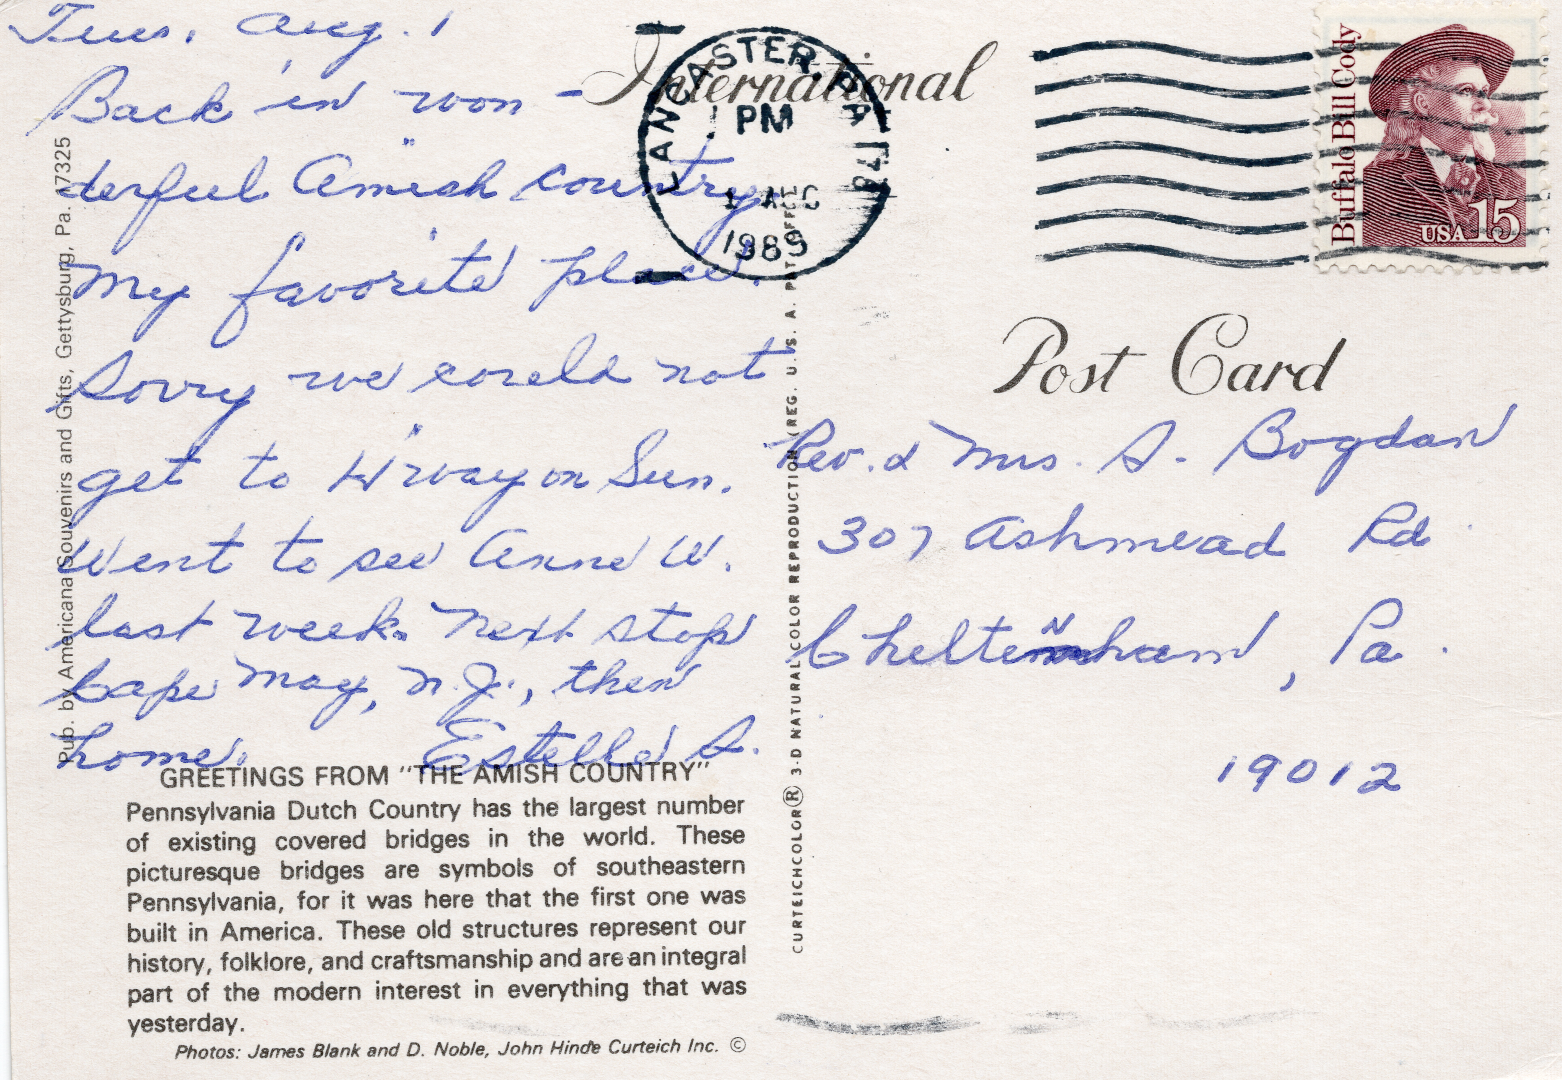 Tues. Aug. 1
Back in won -
derful Amish country,
my favorite place.
Sorry we could not
get to H'way on Sun.
Went to see Anne W.
last week. Next stop
Cape May, N.J., then
home. Estelle S.
GREETINGS FROM "THE AMISH COUNTRY"
Pennsylvania Dutch Country has the largest number
of existing covered bridges in the world. These
picturesque bridges are symbols of southeastern
Pennsylvania, for it was here that the first one was
built in America. These old structures represent our
history, folklore, and craftsmanship and are an integral
part of the modern interest in everything that was
yesterday.
Photos: James Blank and D. Noble, John Hinde Curteich Inc. ©
Pub. by Americana Souvenirs and Gifts, Gettysburg, Pa. 17325
CURTEICHCOLOR® 3-D NATURAL COLOR REPRODUCTION (REG. U. S. A. PAT. OFFICE)
International
LANCASTER, PA
PM
1 AUG
1989
Buffalo Bill Cody
USA 15
Post Card
Rev. & Mrs. S. Bogdan
307 Ashmead Rd
Cheltenham, Pa.
19012